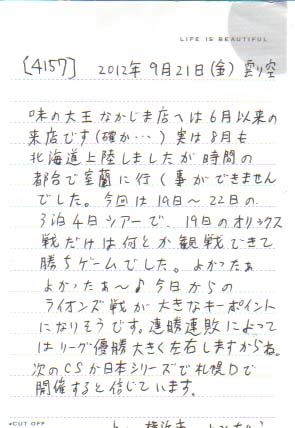 LIFE IS BEAUTIFUL
[4157] 2012年9月21日(金) 曇り空
味の大王なかじま店へは6月以来の
来店です(確か…)実は8月も
北海道上陸しましたが時間の
都合で室蘭に行く事ができません
でした。今回は19日〜22日の
3泊4日ツアーで、19日のオリックス
戦だけは何とか観戦できて
勝ちゲームでした。よかったぁ
よかったぁ〜♪今日からの
ライオンズ戦が大きなキーポイント
になりそうです。連勝連敗によって
はリーグ優勝大きく左右しますからね。
次のCSか日本シリーズで札幌Dで
開催すると信じています。
CUT OFF